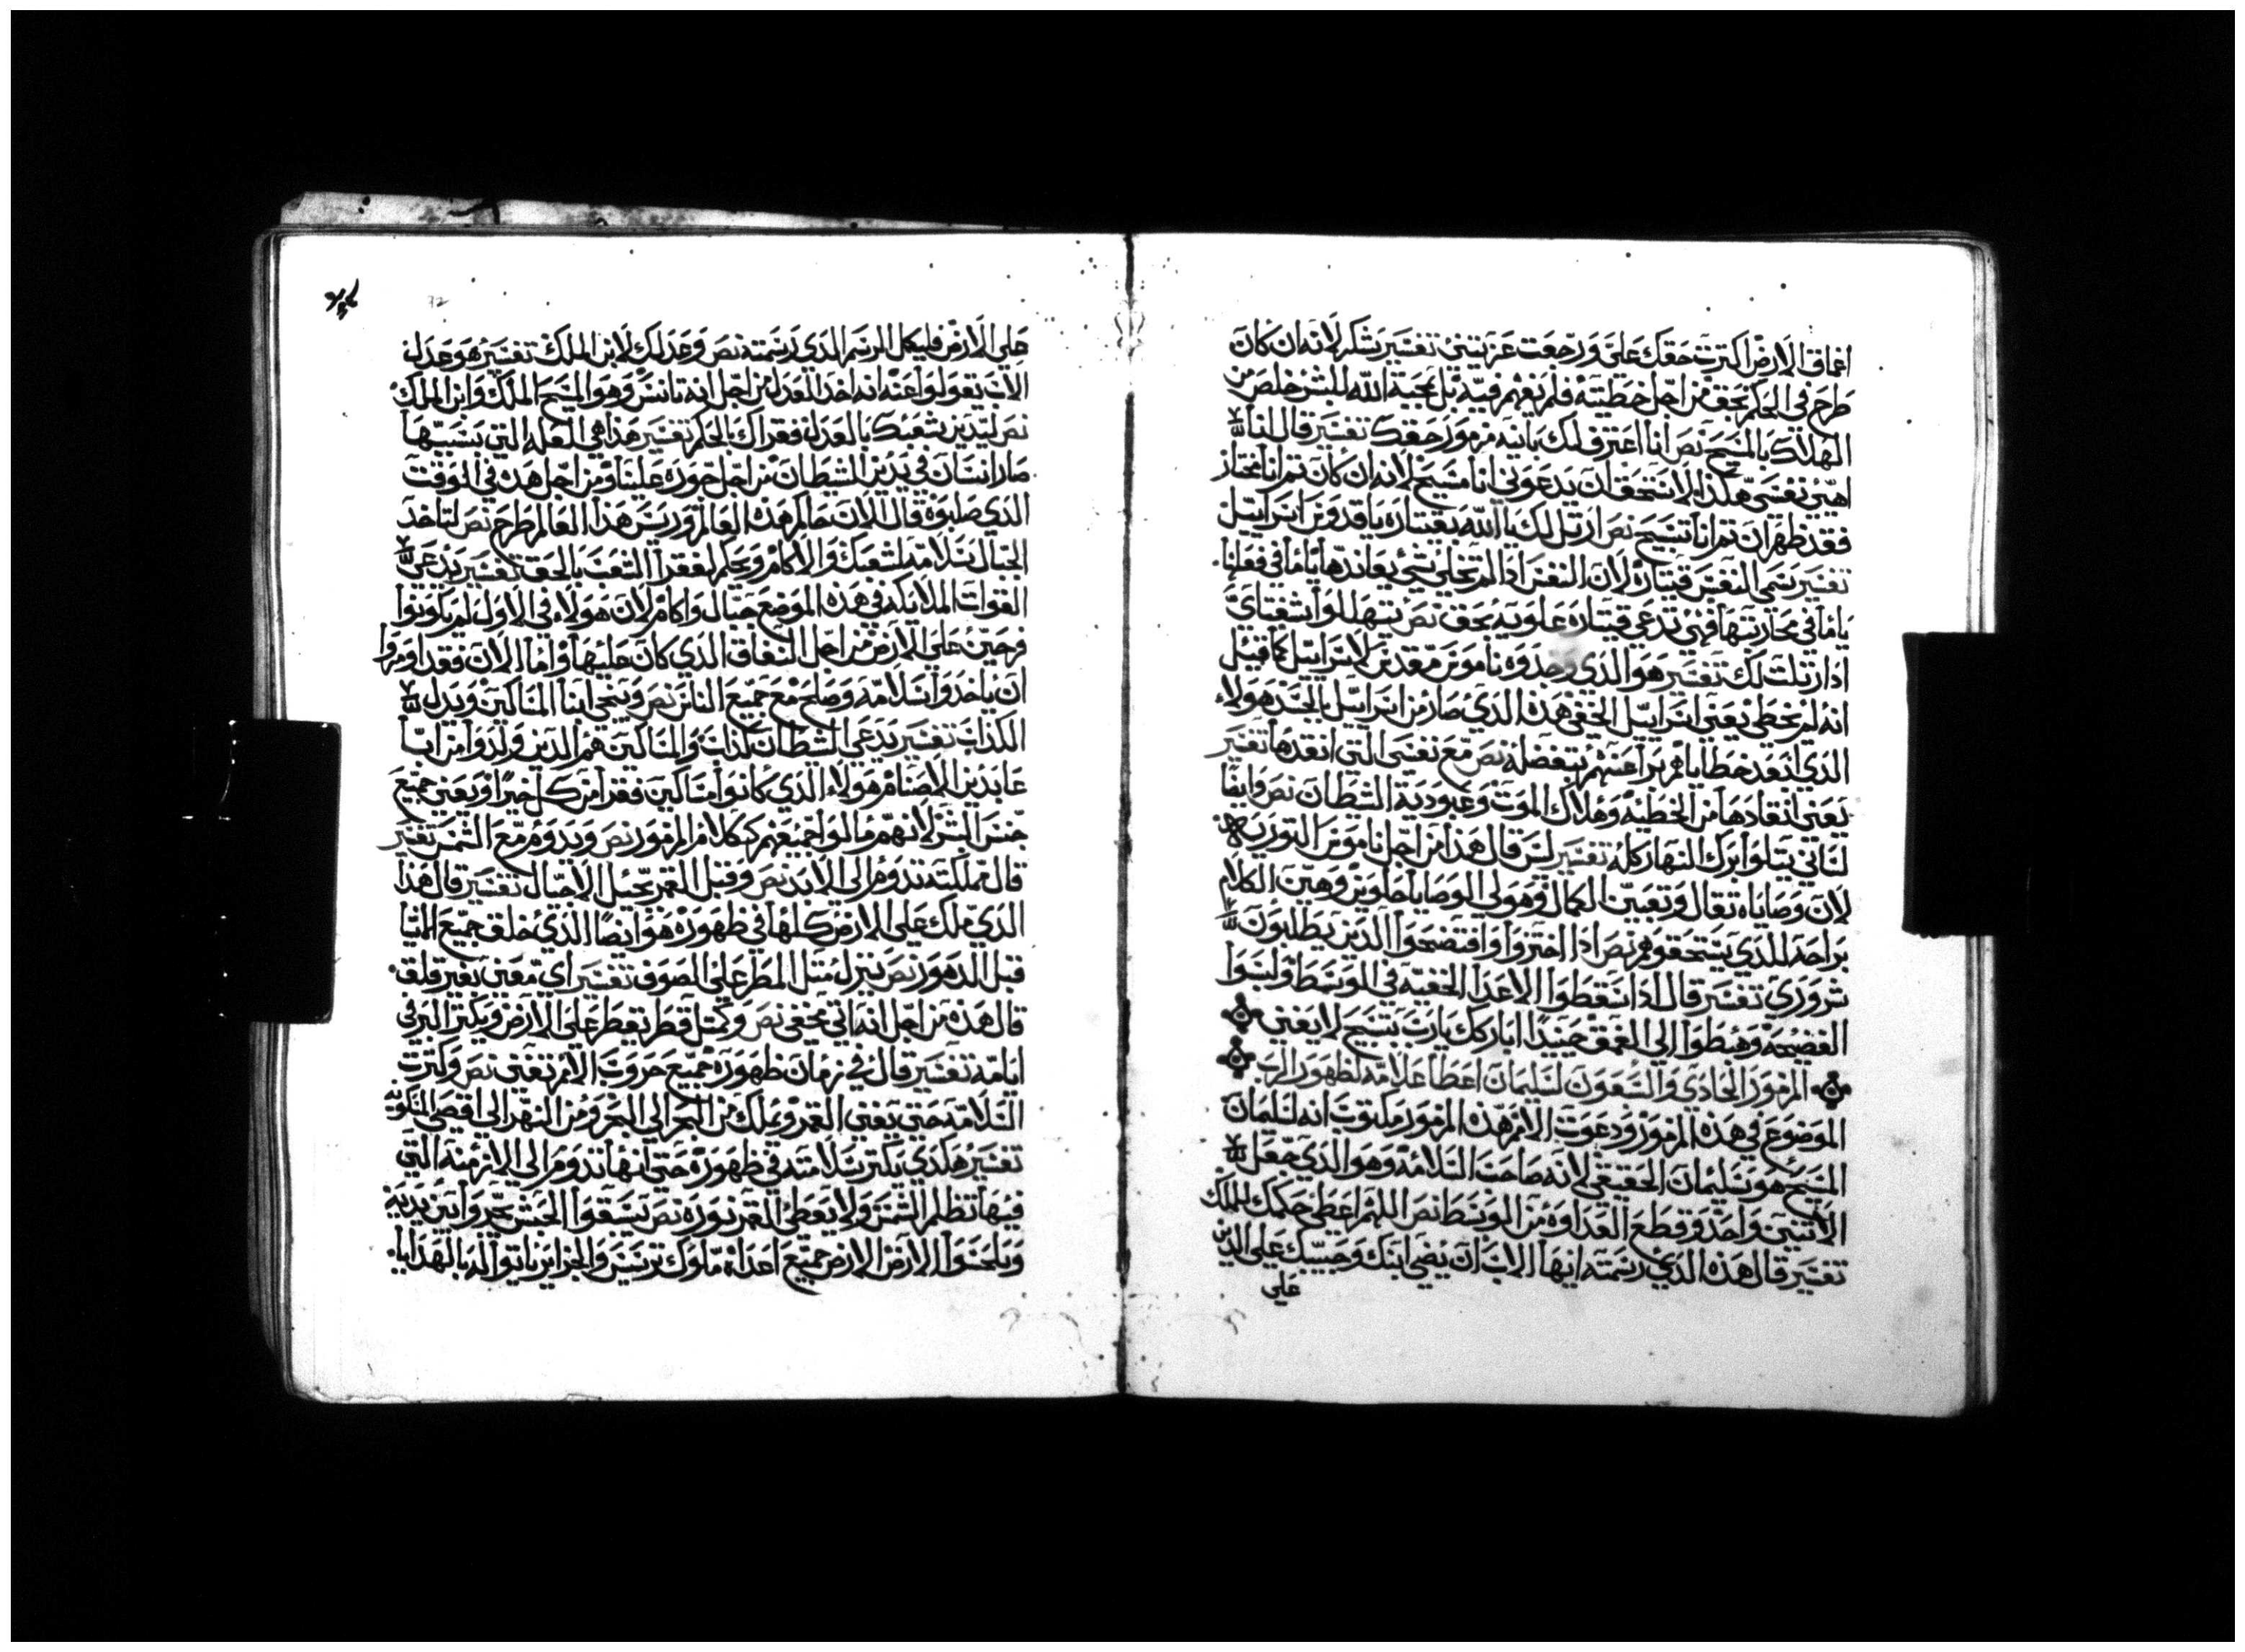 اعماق الارض اكترت حقك علي ورجعت عزيتني تفسير يشكر لانه ان كان
طرح في الحكم بحق من اجل خطيته فلم نفهم فيه بل بمحبة الله للبشر خلص من
الهلاك بالمسيح نص انا اعترف لك يا الله مزمور حقك تفسير قال لنا
اهيي نفسي هكذا لاستحق ان يدعوني انا مسيح لانه ان كان تم انا مختار
فقد ظهر ان تم انا تسبيح نص ارتل لك يا الله بقيتاره يا قدوس اسراييل
تفسير يسمي النفس قيتارة لان النفس ادا لم تخلي شي يعاندها ياما في فعلها
ياما في محاربتها فهي تدعي قيتاره علويه بحق نص يتهللوا شفتاي
ادا رتلت لك تفسير هو الدي وجدوه ناموس مقدس لاسراييل كما قيل
انه لم يخطي يعني اسراييل الحقي هده الدي صار من اسراييل بالجسد هولاء
الدي ابعد خطاياهم برا عنهم بتفضله نص مع نفسي التي انقدها تفسير
يعني انقادها من الخطيه وهلاك الموت وعبودية الشطان نص وايضا
لساني يتلوا برك النهار كله تفسير ليس قال هدا من اجل ناموس التوريه
لان وصاياه تقال وتعبين الكمال وهولي الوصايا حلوين وهيين الكلام
براحه للدي يستحقوهم نص ادا اختزوا وافتضحوا الدين يطلبون
شروري تفسير قال ادا سقطوا الاعدا الخفيه في الوسط ولبسوا
الفضيحه وهبطوا الي العمق حينيدا اباركك يارب بتسبيح لا يغني
المزمور الحادي والسبعون لسليمان اعطا علامه لظهور الرب
الموضوع في هده المزمور ودعوت الامم هده المزمور مكتوب انه لسليمان
المسيح هو سليمان الحقيقي لانه صاحب السلامه وهو الدي جعل
الاتنين واحد وقطع العداوه من الوسط نص اللهم اعطي حكمك للملك
تفسير قال هده الدي رسمته ايها الاب ان يضي ابنك وحبيبك علي الدين
علي
علي الارض فليكمل الرسم الدي رسمته نص وعدلك لابن الملك تفسير هو عدل
الاب يقولوا عنه انه اخد العدل من اجل انه تانس وهو المسيح الملك وابن الملك
نص ليدين شعبك بالعدل فقراك بالحكم تفسير هدا هي العله التي بسببها
صار انسان في يدين الشطان من اجل جوره علينا ومن اجل هده في الوقت
الدي صلبوه قال الان حاكم هده العالم وريس هدا العالم طرح نص لتاخد
الجبال سلامه لشعبك والاكام ويحكم لفقرا الشعب بالحق تفسير يدعي
القوات الملايكه في هده الموضع جبال واكام لان هولاء في الاول لم يكونوا
فرحين علي الارض من اجل النفاق الدي كان عليها واما الان فقد اومروا
ان ياخدوا سلامه وصلح مع جميع الناس نص وينجي ابنا المساكين ويدل
الكداب تفسير يدعي الشطان كداب والمساكين هم الدين ولدوا من ابا
عابدين الاصنام هولاء الدي كانوا مساكين فقرا من كل خيرا ويعني جميع
جنس البشر لانهم مالوا جميعهم ككلام المزمور نص ويدوم مع الشمس تفسير
قال مملكته تدوم الي الابد نص وقبل القمر بجيل الاجيال تفسير قال هدا
الدي ملك علي الارض كلها في ظهوره هو ايضا الدي خلق جميع اشيا
قبل الدهور نص ينزل متل المطر علي الصوف تفسير اي معني بغير قلق
قال هده من اجل انه اتي مخفي نص وكمتل قطر تقطر علي الارض ويكتر البر في
ايامه تفسير قال في زمان ظهوره جميع حروب الامم تفني نص وكترت
السلامه حتي يفني القمر ويملك من البحر الي البحر ومن النهر الي اقصي المسكونه
تفسير هكدي يكتر سلامته في ظهوره حتي انها تدوم الي الازمنه التي
فيها تظلم الشمس ولا يعطي القمر نوره نص تسبقوا الحبش يخروا بين يديه
ويلحسوا الارض الارض جميع اعداه ملوك ترسيس والجزاير ياتوا اليه بالهدايا
72